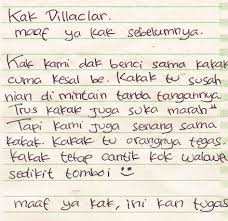 Kak Dillaclar.
maaf ya kak sebelumnya.
Kak kami dak benci sama kakak
cuma kesal be. Kakak tu susah
nian di mintain tanda tangannya.
Trus kakak juga suka marah"
Tapi kami juga senang sama
kakak. Kakak tu orangnya tegas.
Kakak tetap cantik kok walaup
sedikit tomboi
maaf ya kak, ini kan tugas